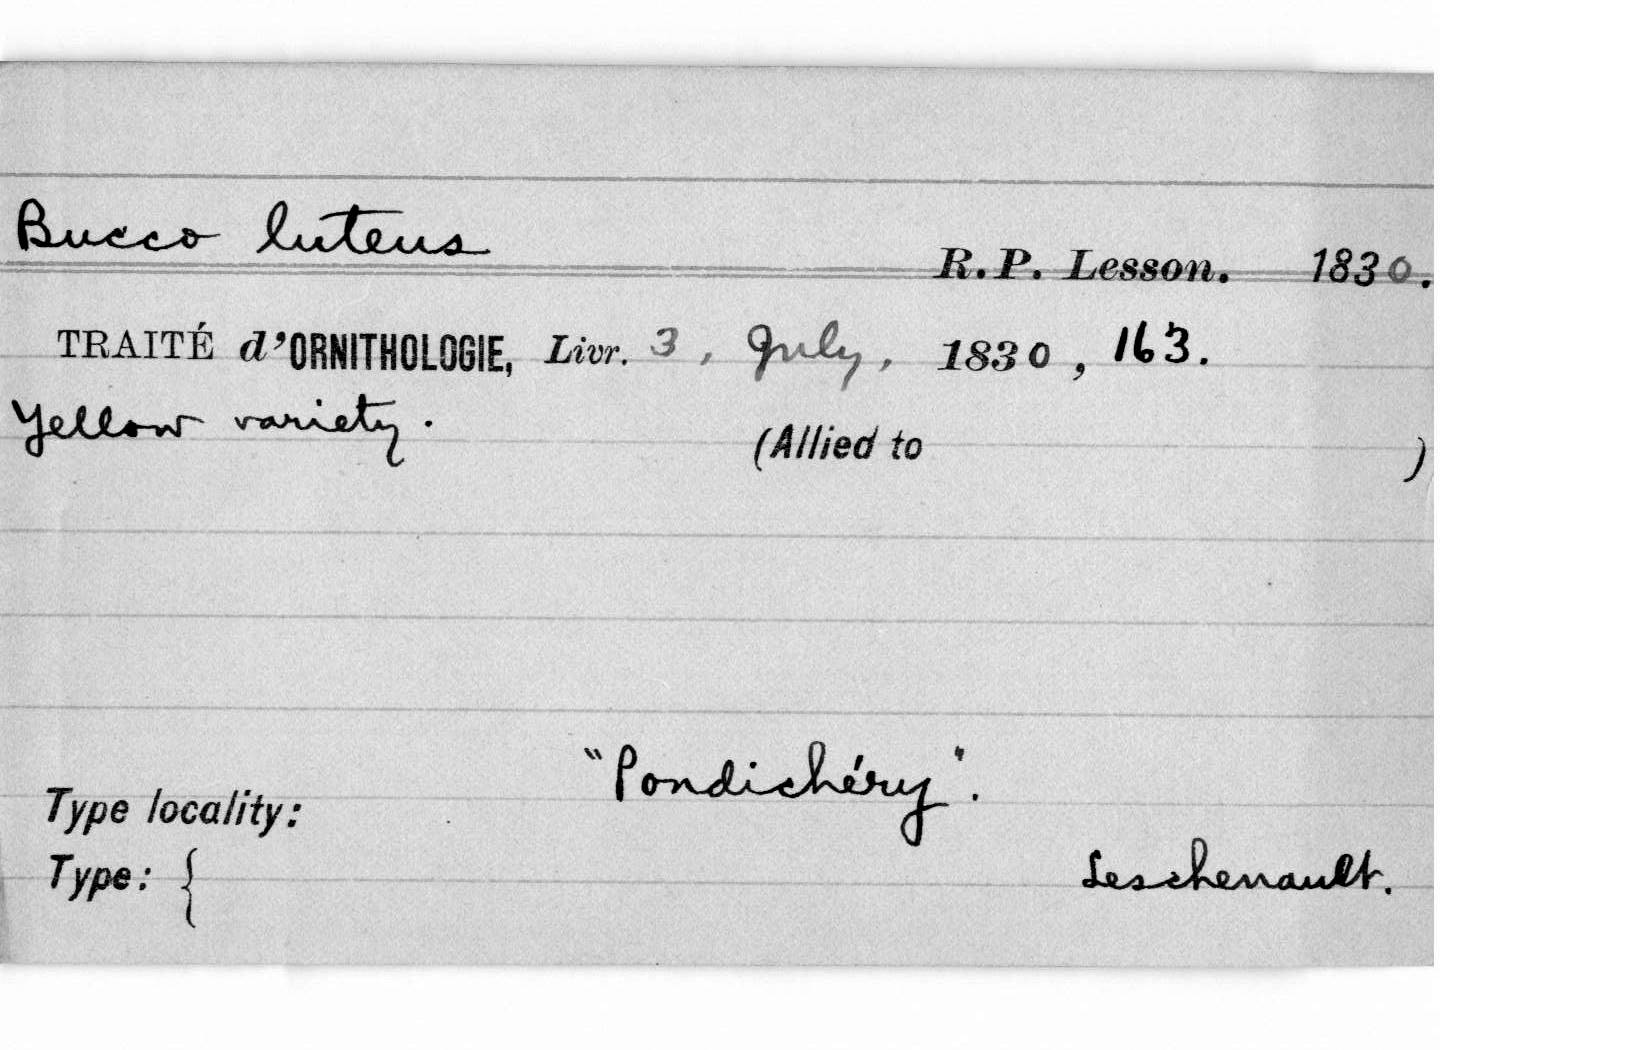 Bucco luteus
R.P. Lesson. 1830.
TRAITÉ d'ORNITHOLOGIE, Livr. 3, July, 1830, 163.
Yellow variety. (Allied to )
Type locality: "Pondichéry".
Type: { Leschenault.